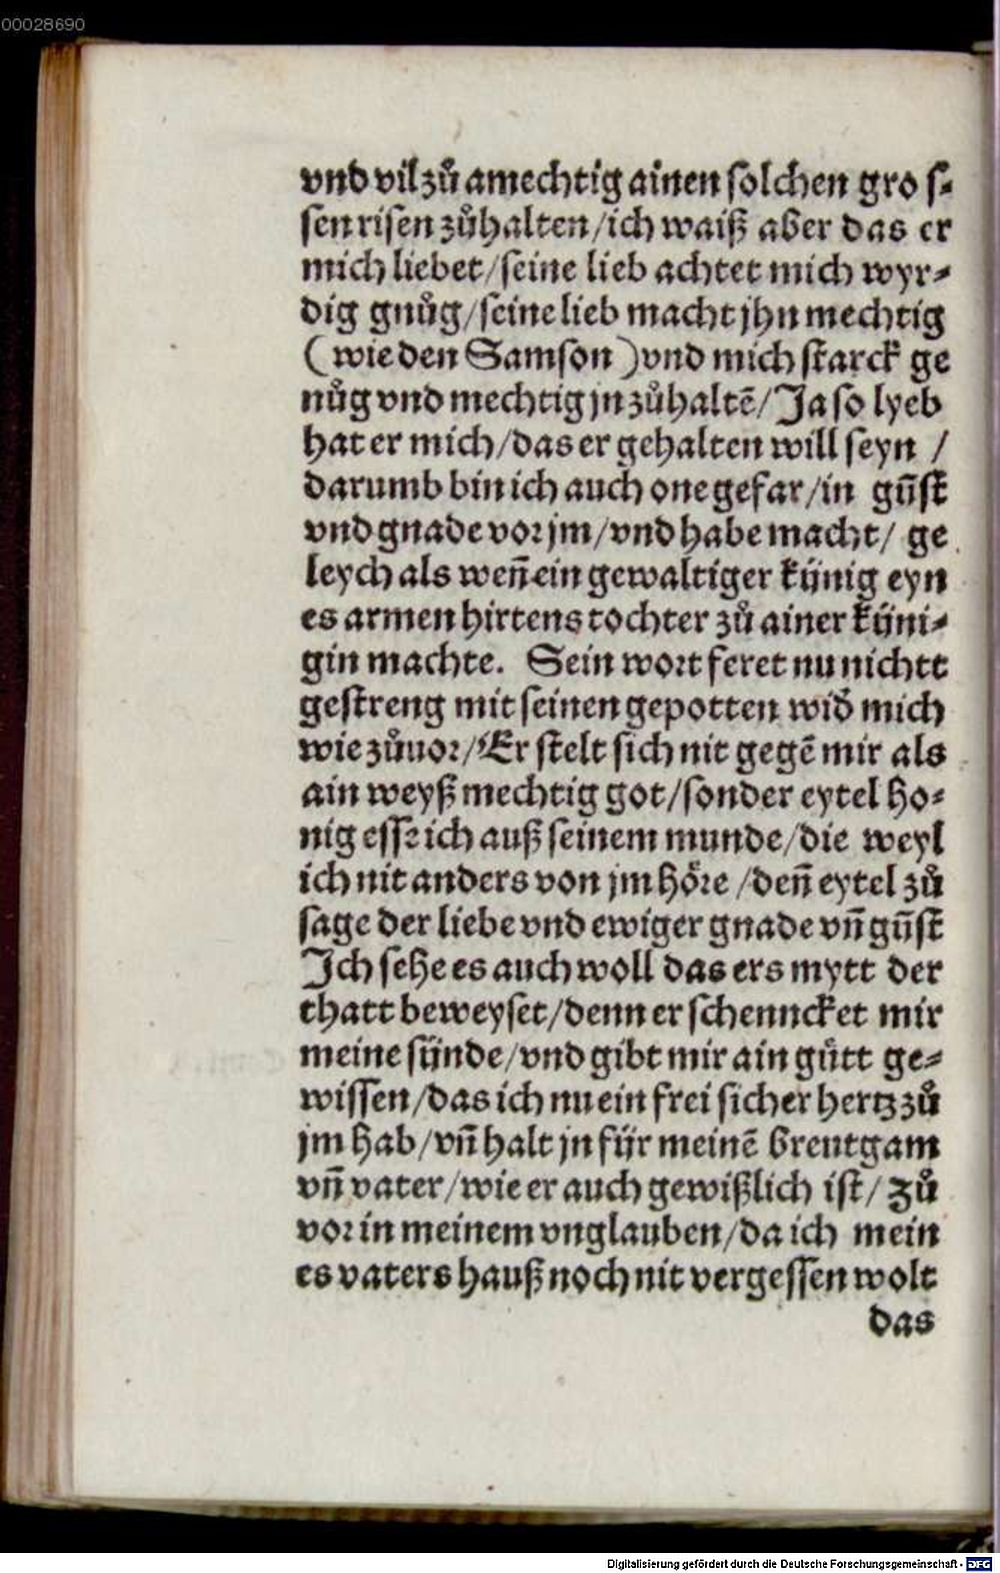 00028690
vnd vil zů amechtig ainen solchen gro s⸗
sen risen zůhalten/ich waiß aber das er
mich liebet/seine lieb achtet mich wyr⸗
dig gnůg/seine lieb macht jhn mechtig
(wie den Samson )vnd mich starck ge
nůg vnd mechtig jn zůhaltē/Ja so lyeb
hat er mich/das er gehalten will seyn /
darumb bin ich auch one gefar/in gūst
vnd gnade vor jm/vnd habe macht/ ge
leych als weñ ein gewaltiger künig eyn
es armen hirtens tochter zů ainer küni⸗
gin machte. Sein wort feret nu nichtt
gestreng mit seinen gepotten wid̄ mich
wie zůuor/Er stelt sich nit gegē mir als
ain weyß mechtig got/sonder eytel ho⸗
nig esse ich auß seinem munde/die weyl
ich nit anders von jm höre /deñ eytel zů
sage der liebe vnd ewiger gnade vñ gūst
Ich sehe es auch woll das ers mytt der
thatt beweyset/denn er schenncket mir
meine sünde/vnd gibt mir ain gůtt ge⸗
wissen/das ich nu ein frei sicher hertz zů
jm hab/vñ halt jn für meinē breutgam
vñ vater/wie er auch gewißlich ist/ zů
vor in meinem vnglauben/da ich mein
es vaters hauß noch nit vergessen wolt
das
Digitalisierung gefördert durch die Deutsche Forschungsgemeinschaft - DFG